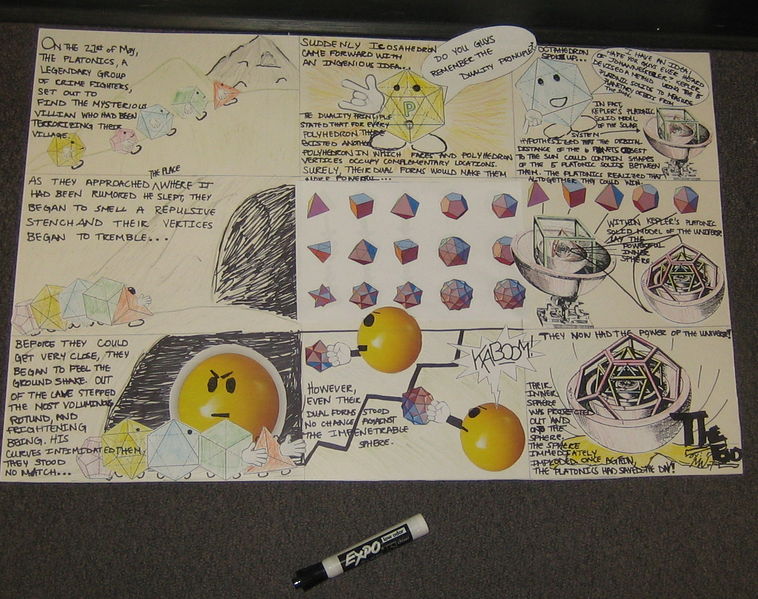 ON THE 21st OF MAY,
THE PLATONICS, A
LEGENDARY GROUP
OF CRIME FIGHTERS,
SET OUT TO
FIND THE MYSTERIOUS
VILLIAN WHO HAD BEEN
TERRORIZING THEIR
VILLAGE.
SUDDENLY ICOSAHEDRON
CAME FORWARD WITH
AN INGENIOUS IDEA...
DO YOU GUYS
REMEMBER THE
DUALITY PRINCIPLE?
P
THE DUALITY PRINCIPLE
STATED THAT FOR EVERY
POLYHEDRON THERE
EXISTED ANOTHER
POLYHEDRON IN WHICH FACES AND POLYHEDRON
VERTICES OCCUPY COMPLEMENTARY LOCATIONS.
SURELY, THEIR DUAL FORMS WOULD MAKE THEM
MORE POWERFUL...
OCTAHEDRON
SPOKE UP...
I HAVE AN IDEA!
HAVE YOU GUYS EVER HEARD
OF JOHANNES KEPLER? KEPLER
DEVISED A METHOD USING THE 5
PLATONIC SOLIDS TO MEASURE
PLANETARY ORBITS FROM
THE SUN!
IN FACT,
KEPLER'S PLATONIC
SOLID MODEL
OF THE SOLAR
SYSTEM
HYPOTHESIZED THAT THE ORBITAL
DISTANCE OF THE 6 PLANETS CLOSEST
TO THE SUN COULD CONTAIN SHAPES
OF THE 5 PLATONIC SOLIDS BETWEEN
THEM. THE PLATONICS REALIZED THAT
ALTOGETHER THEY COULD WIN
THE PLACE
AS THEY APPROACHED WHERE IT
HAD BEEN RUMORED HE SLEPT, THEY
BEGAN TO SMELL A REPULSIVE
STENCH AND THEIR VERTICES
BEGAN TO TREMBLE...
WITHIN KEPLER'S PLATONIC
SOLID MODEL OF THE UNIVERSE
LAY THE
POWERFUL
INNER
SPHERE
BEFORE THEY COULD
GET VERY CLOSE, THEY
BEGAN TO FEEL THE
GROUND SHAKE. OUT
OF THE CAVE STEPPED
THE MOST VOLUMINOUS,
ROTUND, AND
FRIGHTENING
BEING. HIS
CURVES INTIMIDATED THEM,
THEY STOOD
NO MATCH...
HOWEVER,
EVEN THEIR
DUAL FORMS STOOD
NO CHANCE AGAINST
THE IMPENETRABLE
SPHERE.
KABOOM!
THEY NOW HAD THE POWER OF THE UNIVERSE!
THEIR
INNER
SPHERE
WAS PROJECTED
OUT AND
ONTO THE
SPHERE.
THE SPHERE
IMMEDIATELY
IMPLODED. ONCE AGAIN,
THE PLATONICS HAD SAVED THE DAY!
THE
END
EXPO
low odor